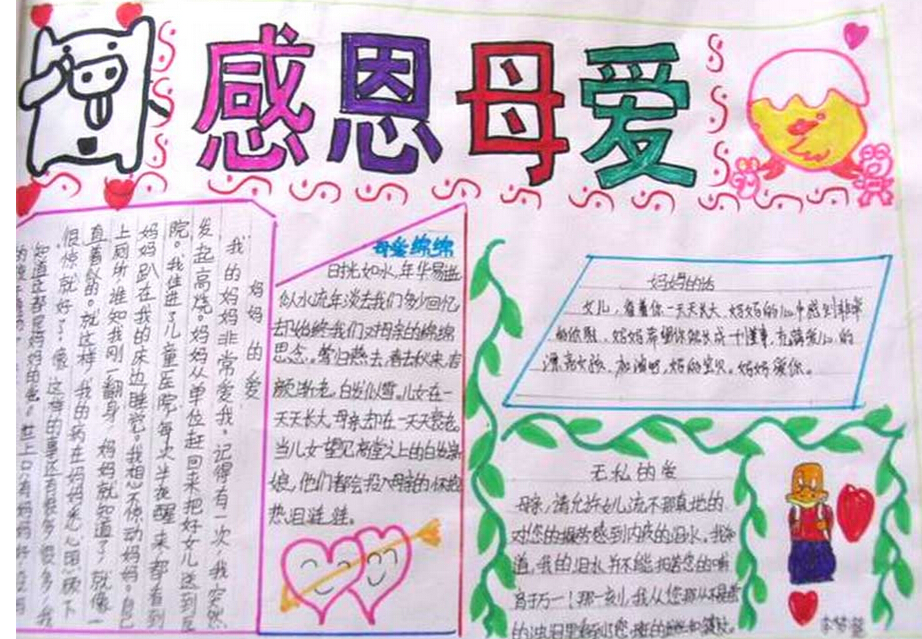 感恩母爱
妈妈的爱
我的妈妈非常爱我。记得有一次,我突然
发起高烧。妈妈从单位赶回来把好女儿送到医
院。我住进了儿童医院,每次半夜醒来,都看到
妈妈趴在我的床边睡觉。我想不惊动妈妈。自己
上厕所,谁知我刚一翻身,妈妈就知道了,就像一
直看着的。就这样,我的病在妈妈悉心照顾下
很快就好了。像这样的事还有很多很多,我
知道这都是妈妈的爱。世上只有妈妈好,没有
母爱绵绵
时光如水,年华易逝
似水流年淡去我们多少回忆
却始终我们对母亲的绵绵
思念。莺归燕去,春去秋来,容
颜渐老,白发似雪。儿女在一
天天长大,母亲却在一天天衰老。
当儿女望见高堂之上的白发亲
娘,他们都会投入母亲的怀抱
热泪涟涟。
妈妈的话
女儿,看着你一天天长大,妈妈的心中感到非常
的欣慰,妈妈希望你能长成一个懂事,充满爱心的
漂亮女孩,加油吧,妈的宝贝。妈妈爱你。
无私的爱
母亲,请允许女儿流不那真地的
对您的操劳感到内疚的泪水。我知
道,我的泪水并不能报答您的哺
育于万一!那一刻,我从您那从不轻意